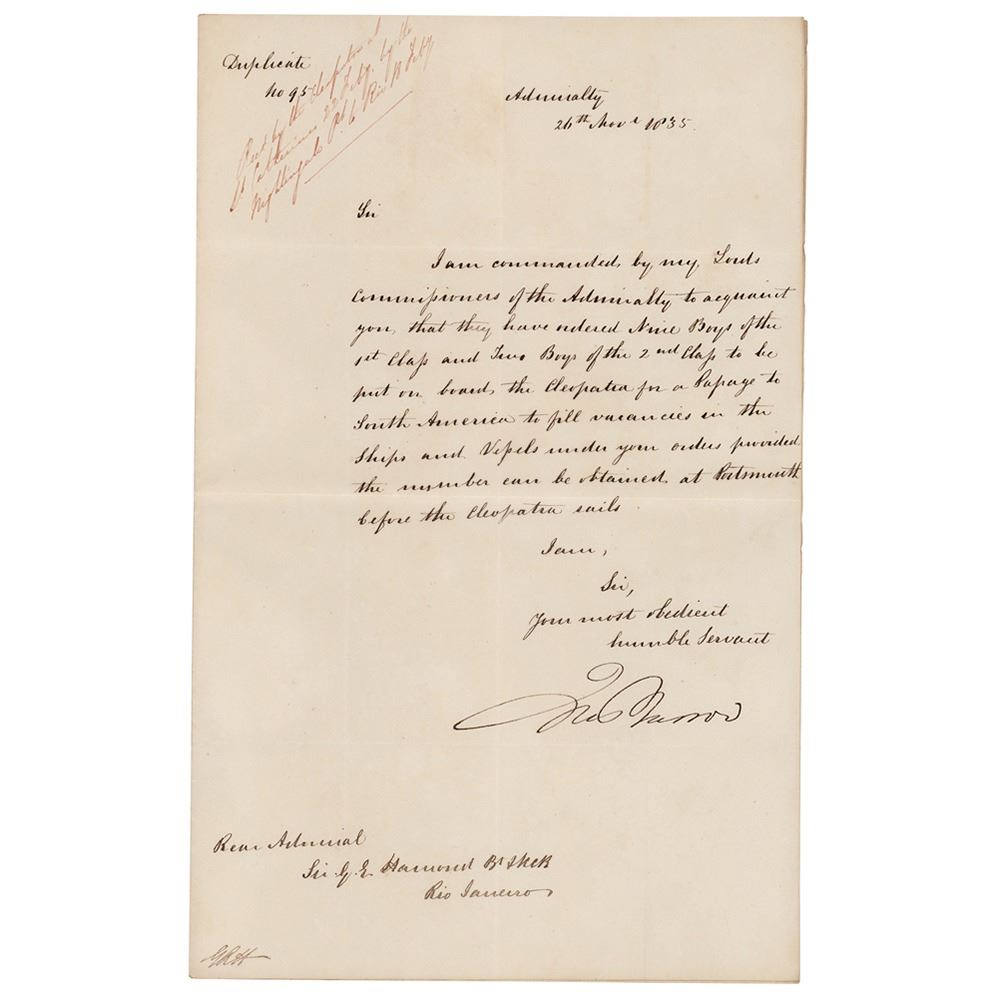 Duplicate
No 95
Recd by the Cleopatra at
St Catherines 22 Feby. by the
Nightingale Pt. 6 Rio 18 Feby
Admiralty
26th Novr 1835.
Sir
I am commanded by my Lords
Commissioners of the Admiralty to acquaint
you, that they have ordered Nine Boys of the
1st Class and Two Boys of the 2nd Class to be
put on board the Cleopatra for a Passage to
South America to fill vacancies in the
Ships and Vessels under your orders provided
the number can be obtained at Portsmouth
before the Cleopatra sails
I am,
Sir,
Your most obedient
humble Servant
Jno Barrow
Rear Admiral
Sir G. E. Hamond Bt &KCB
Rio Janeiro